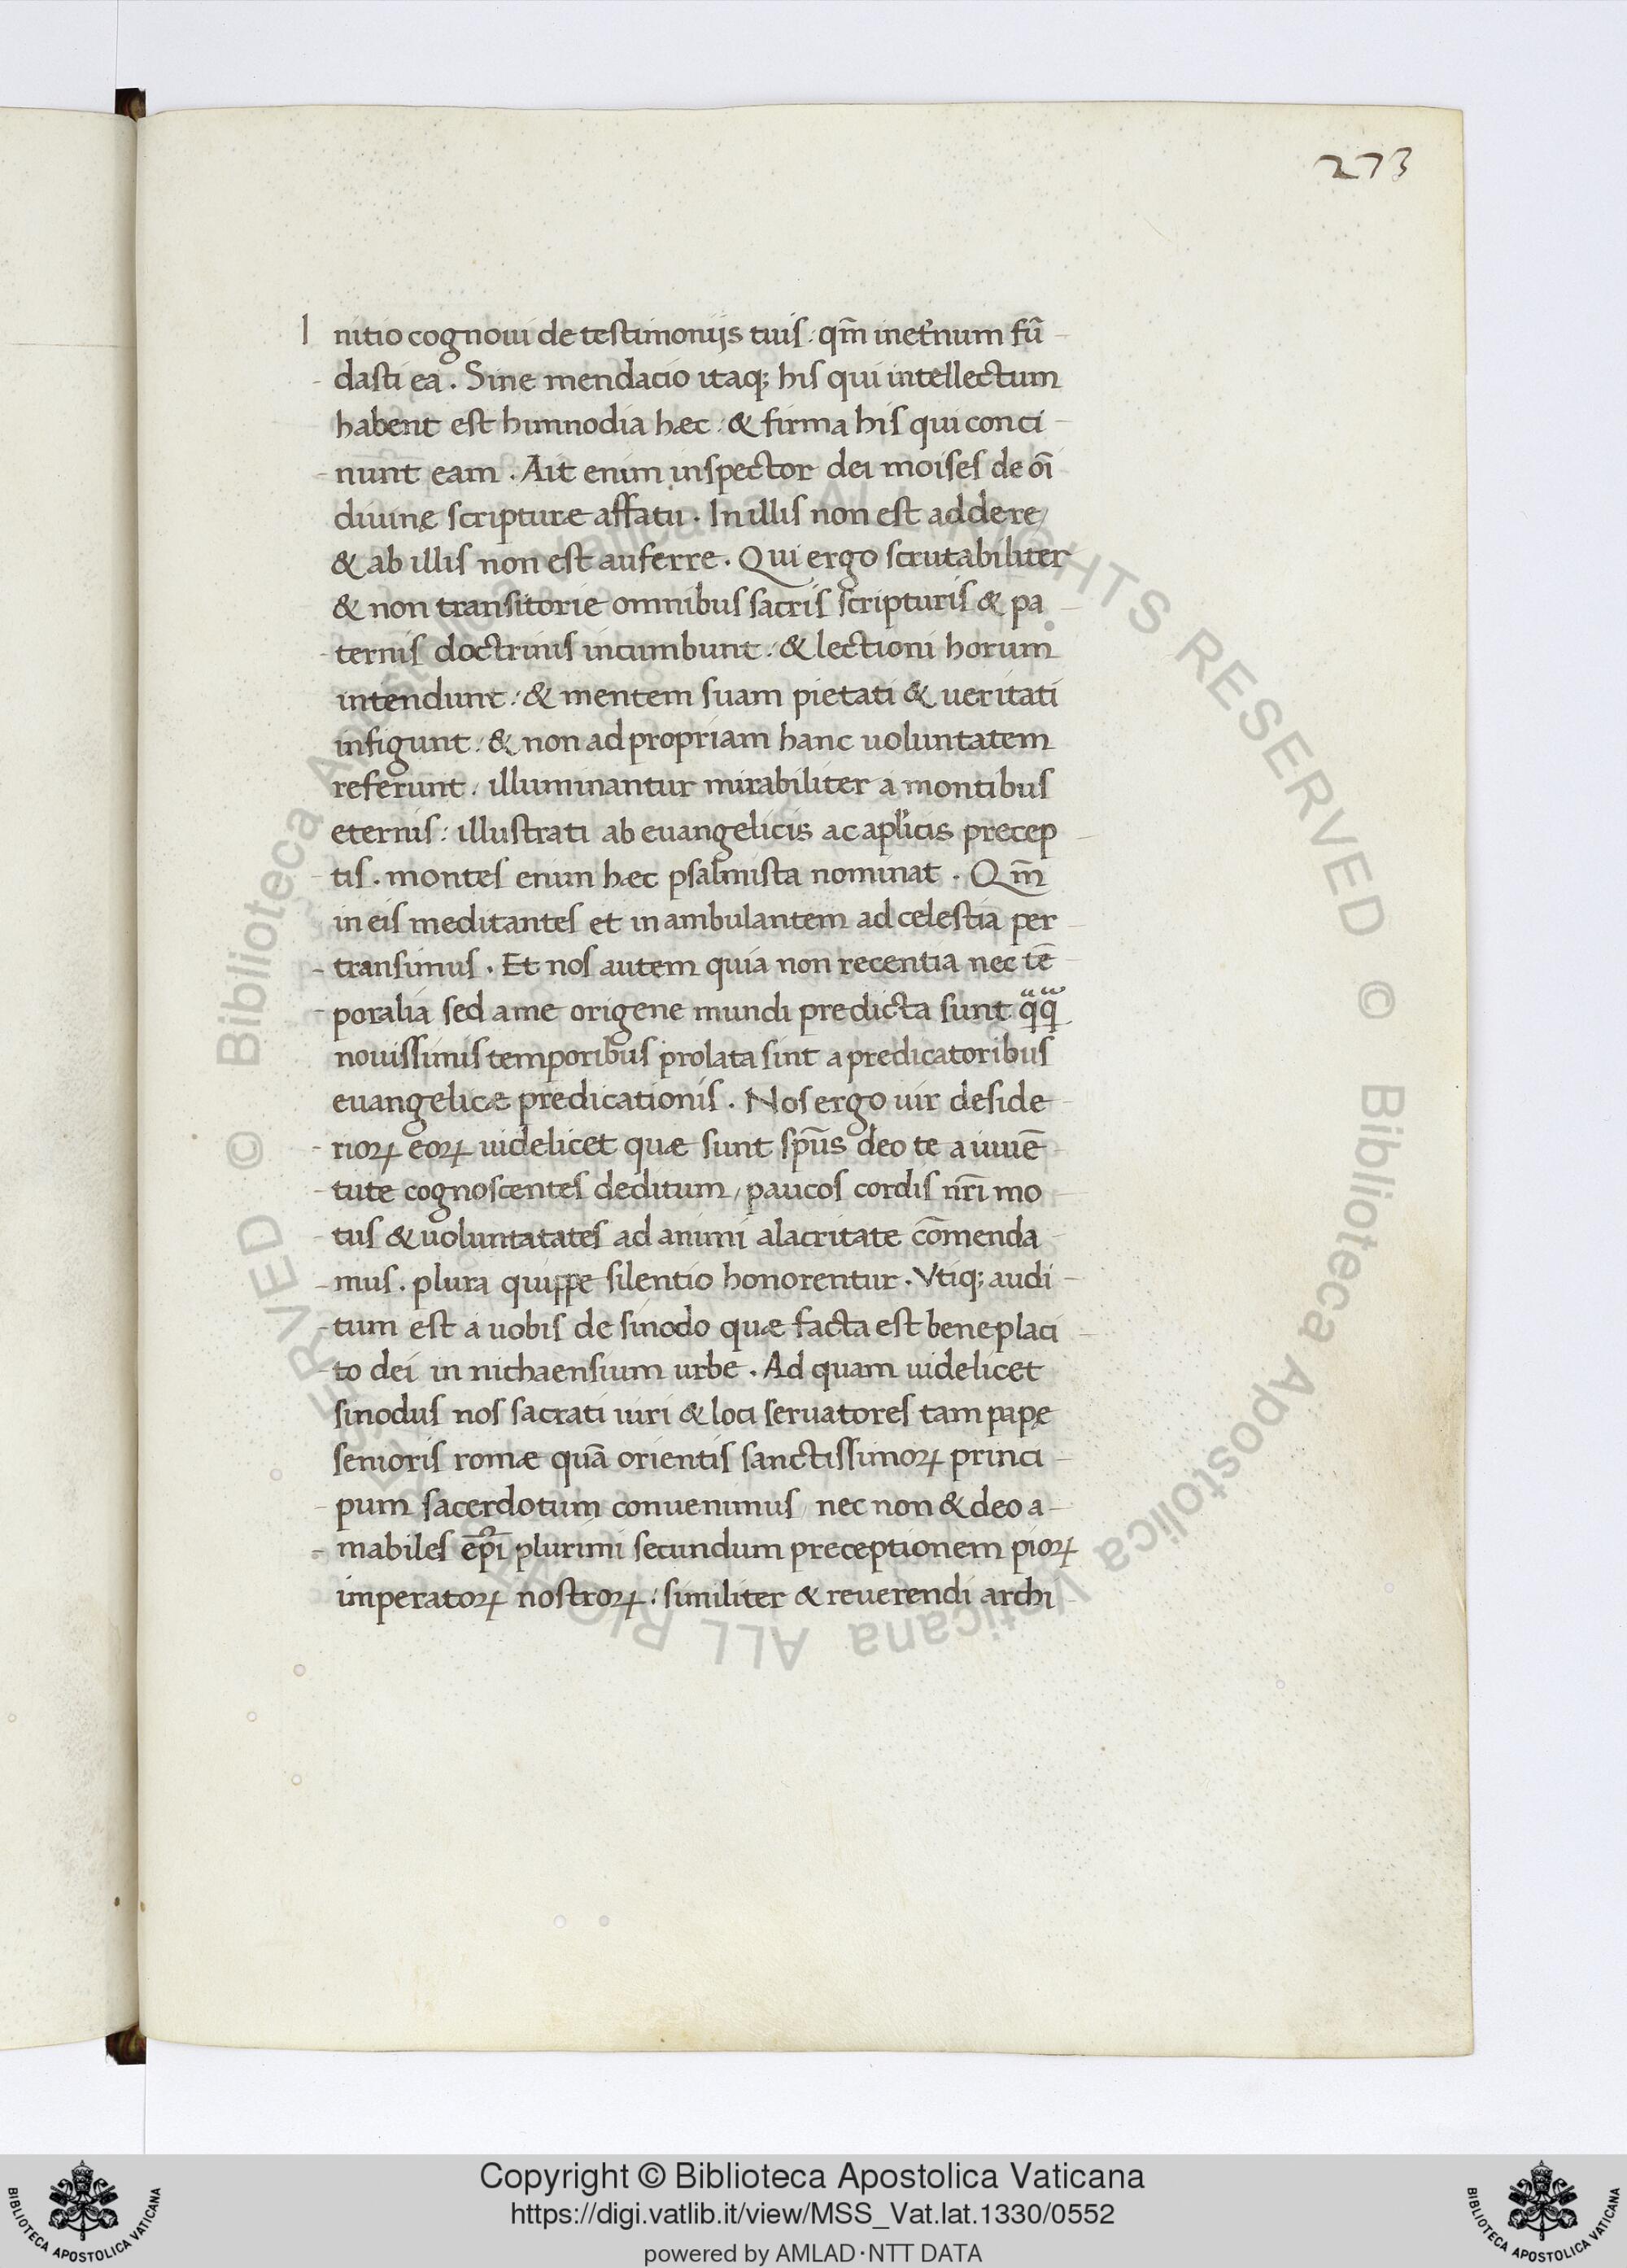 273
Initio cognoui de testimonijs tuis: qm̄ inet̓num fū
dasti ea. Sine mendacio itaq; his qui intellectum
habent est himnodia hæc: & firma his qui conci
nunt eam. Ait enim inspector dei moises de oī
diuinę scripturæ affatu. In illis non est addere/
& ab illis non est auferre. Qui ergo scrutabiliter
& non transitorie omnibus sacris scripturis & pa
ternis doctrinis incumbunt: & lectioni horum
intendunt: & mentem suam pietati & ueritati
infigunt: & non ad propriam hanc uoluntatem
referunt: illuminantur mirabiliter a montibus
eternis: illustrati ab euangelicis ac apl̓icis precep
tis. montes enim hæc psalmista nominat. Qm̄
in eis meditantes et in ambulantem ad celestia per
transimus. Et nos autem quia non recentia nec tē
poralia sed a me origene mundi predicta sunt qͣqͣ
nouissimis temporibus prolata sint a predicatoribus
euangelicæ predicationis. Nos ergo uir deside
rioꝝ eoꝝ uidelicet quæ sunt sp̄us deo te a iuuē
tute cognoscentes deditum/ paucos cordis nr̄i mo
tus & uoluntatates ad animi alacritate cōmenda
mus. plura quippe silentio honorentur. Vtiq; audi
tum est a uobis de sinodo quæ facta est beneplaci
to dei in nichaensium urbe. Ad quam uidelicet
sinodus nos sacrati uiri & loci seruatores tam papę
senioris romæ quā orientis sanctissimoꝝ princi
pum sacerdotum conuenimus/ nec non & deo a
mabiles ep̄i plurimi secundum preceptionem pioꝝ
imperatoꝝ nostroꝝ: similiter & reuerendi archi
© Biblioteca Apostolica Vaticana ALL RIGHTS RESERVED © Biblioteca Apostolica Vaticana ALL RIGHTS RESERVED
BIBLIOTECA APOSTOLICA VATICANA
Copyright © Biblioteca Apostolica Vaticana
https://digi.vatlib.it/view/MSS_Vat.lat.1330/0552
powered by AMLAD·NTT DATA
BIBLIOTECA APOSTOLICA VATICANA